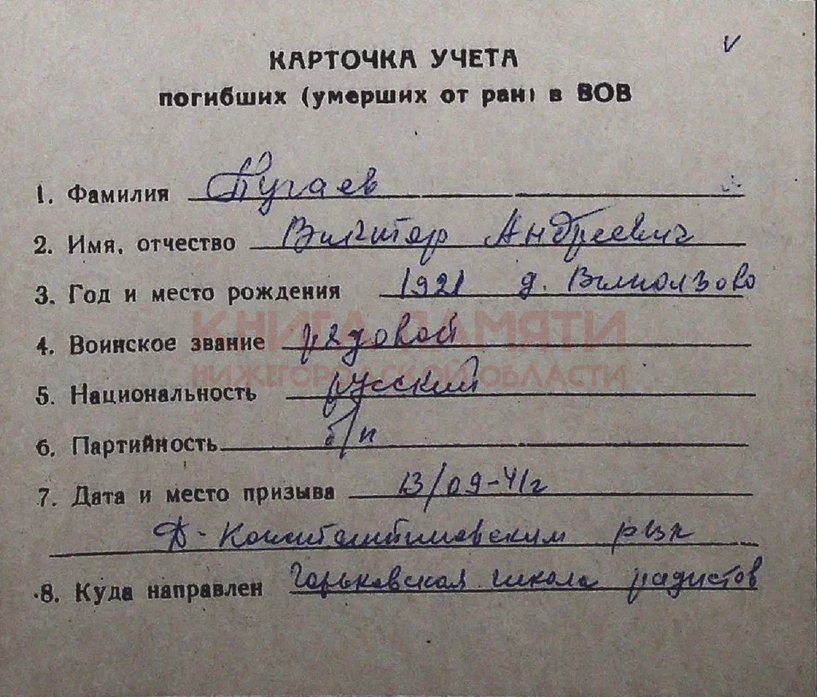 КАРТОЧКА УЧЕТА
погибших (умерших от ран) в ВОВ
1. Фамилия Пугаев
2. Имя, отчество Виктор Андреевич
3. Год и место рождения 1921 д.
КНИГА ПАМЯТИ
4. Воинское звание рядовой
НИЖЕГОРОДСКОЙ ОБЛАСТИ
5. Национальность русский
6. Партийность б/п
7. Дата и место призыва 13/09-41г
Д-Константиновским рвк
8. Куда направлен Горьковская школа радистов